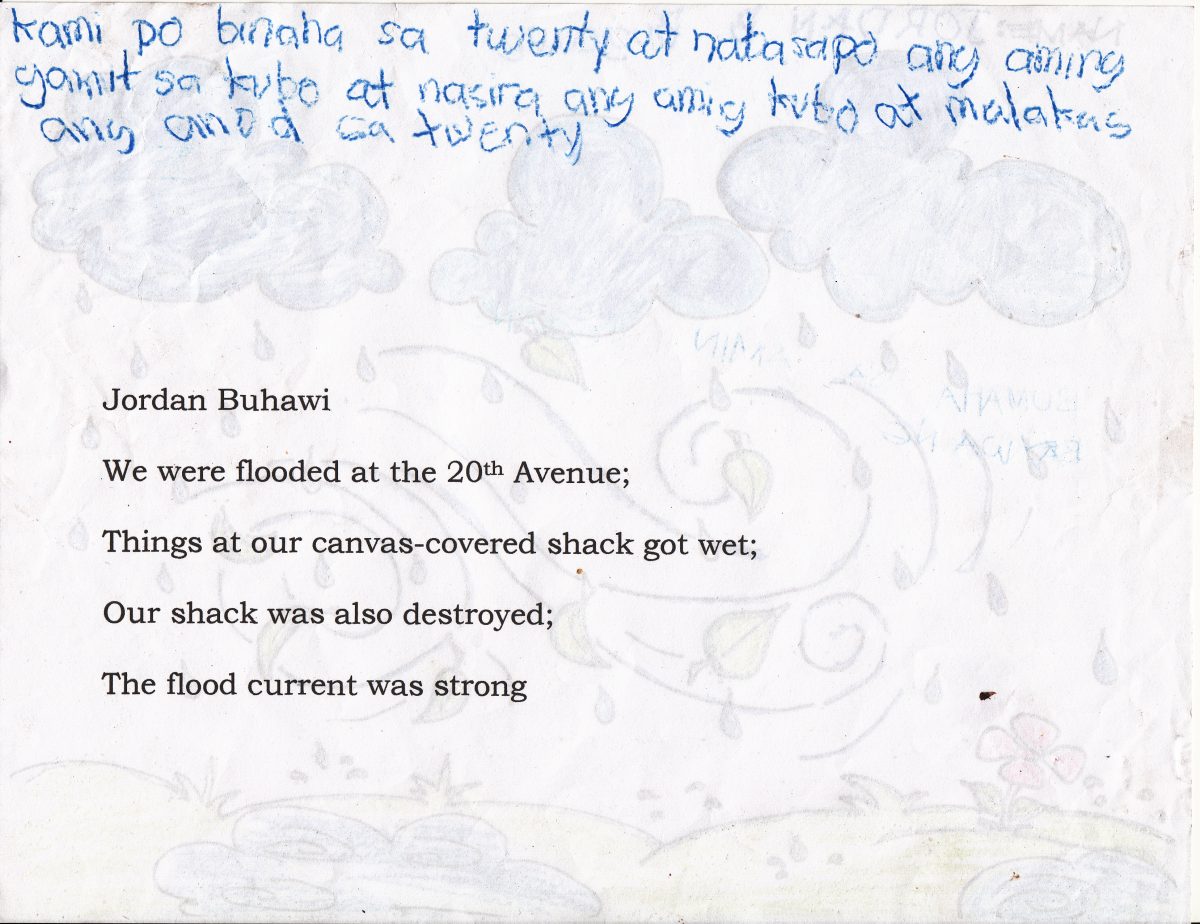 kami po binaha sa twenty at natasapo ang aming
gamit sa kubo at nasira ang amig kubo at malakas
ang anod sa twenty
Jordan Buhawi
We were flooded at the 20th Avenue;
Things at our canvas-covered shack got wet;
Our shack was also destroyed;
The flood current was strong